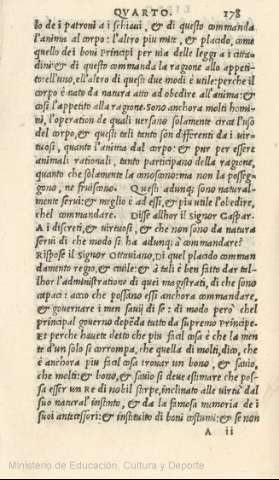 QVARTO. 178
lo de i patroni a i schiaui, & di questo commanda
l'anima al corpo: l'altro piu mite, & placido, come
quello dei boni Principi per uia delle leggi a i citta=
dini: & di questo commanda la ragione allo appeti=
to: e l'uno, e l'altro di questi due modi è utile: perche il
corpo è nato da natura atto ad obedire all'anima: & co
si l'appetito alla ragione. Sono anchora molti homi=
ni, l'operation de quali uersano solamente circa l'uso
del corpo, & questi tali tanto son differenti da i uir=
tuosi, quanto l'anima dal corpo: & pur per essere
animali rationali, tanto participano della ragione,
quanto che solamente la conoscono: ma non la posseg=
gono, ne fruiscono. Questi adunq; sono natural=
mente serui: & meglio è ad essi, & piu utile l'obedire,
chel commandare. Disse allhor il signor Gaspar.
A i discreti, & uirtuosi, & che non sono da natura
serui di che modo si ha adunq; à commandare?
Rispose il Signor Ottauiano, Di quel placido comman
damento regio, & ciuile: & à tali è ben fatto dar tal=
lhor l'administratione di quei magistrati, di che sono
capaci: accio che possano essi anchora commandare,
& gouernare i men sauij di se: di modo però chel
principal gouerno depēda tutto da supremo Principe.
Et perche hauete detto che piu facil cosa è che la men
te d'un solo si corrompa, che quella di molti, dico, che
è anchora piu facil cosa trouar un bono, & sauio,
che molti: & bono, & sauio si deue estimare che pos=
sa esser un RE di nobil stirpe, inclinato alle uirtù dal
suo natural instinto, & da la famosa memoria de i
suoi antecessori: & instituito di boni costumi: & se non
A ii
Ministerio de Educación, Cultura y Deporte